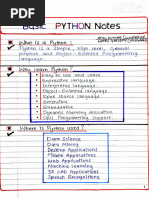 Basic PYTHON Notes
What is a Python :
Python is a Simple, High level, General
purpose and Object-Oriented Programming
language.
Why Learn Python?
Easy to use and Learn
Expressive Language
Interpreted Language
Object-Oriented Language
Open Source Language
Extensible
Embeddable
Dynamic Memory Allocation
GUI Programming Support
Where is Python used?
Data Science
Data Mining
Desktop Applications
Mobile Applications
Web Applications
Machine Learning
3D CAD Applications
Speech Recognitions